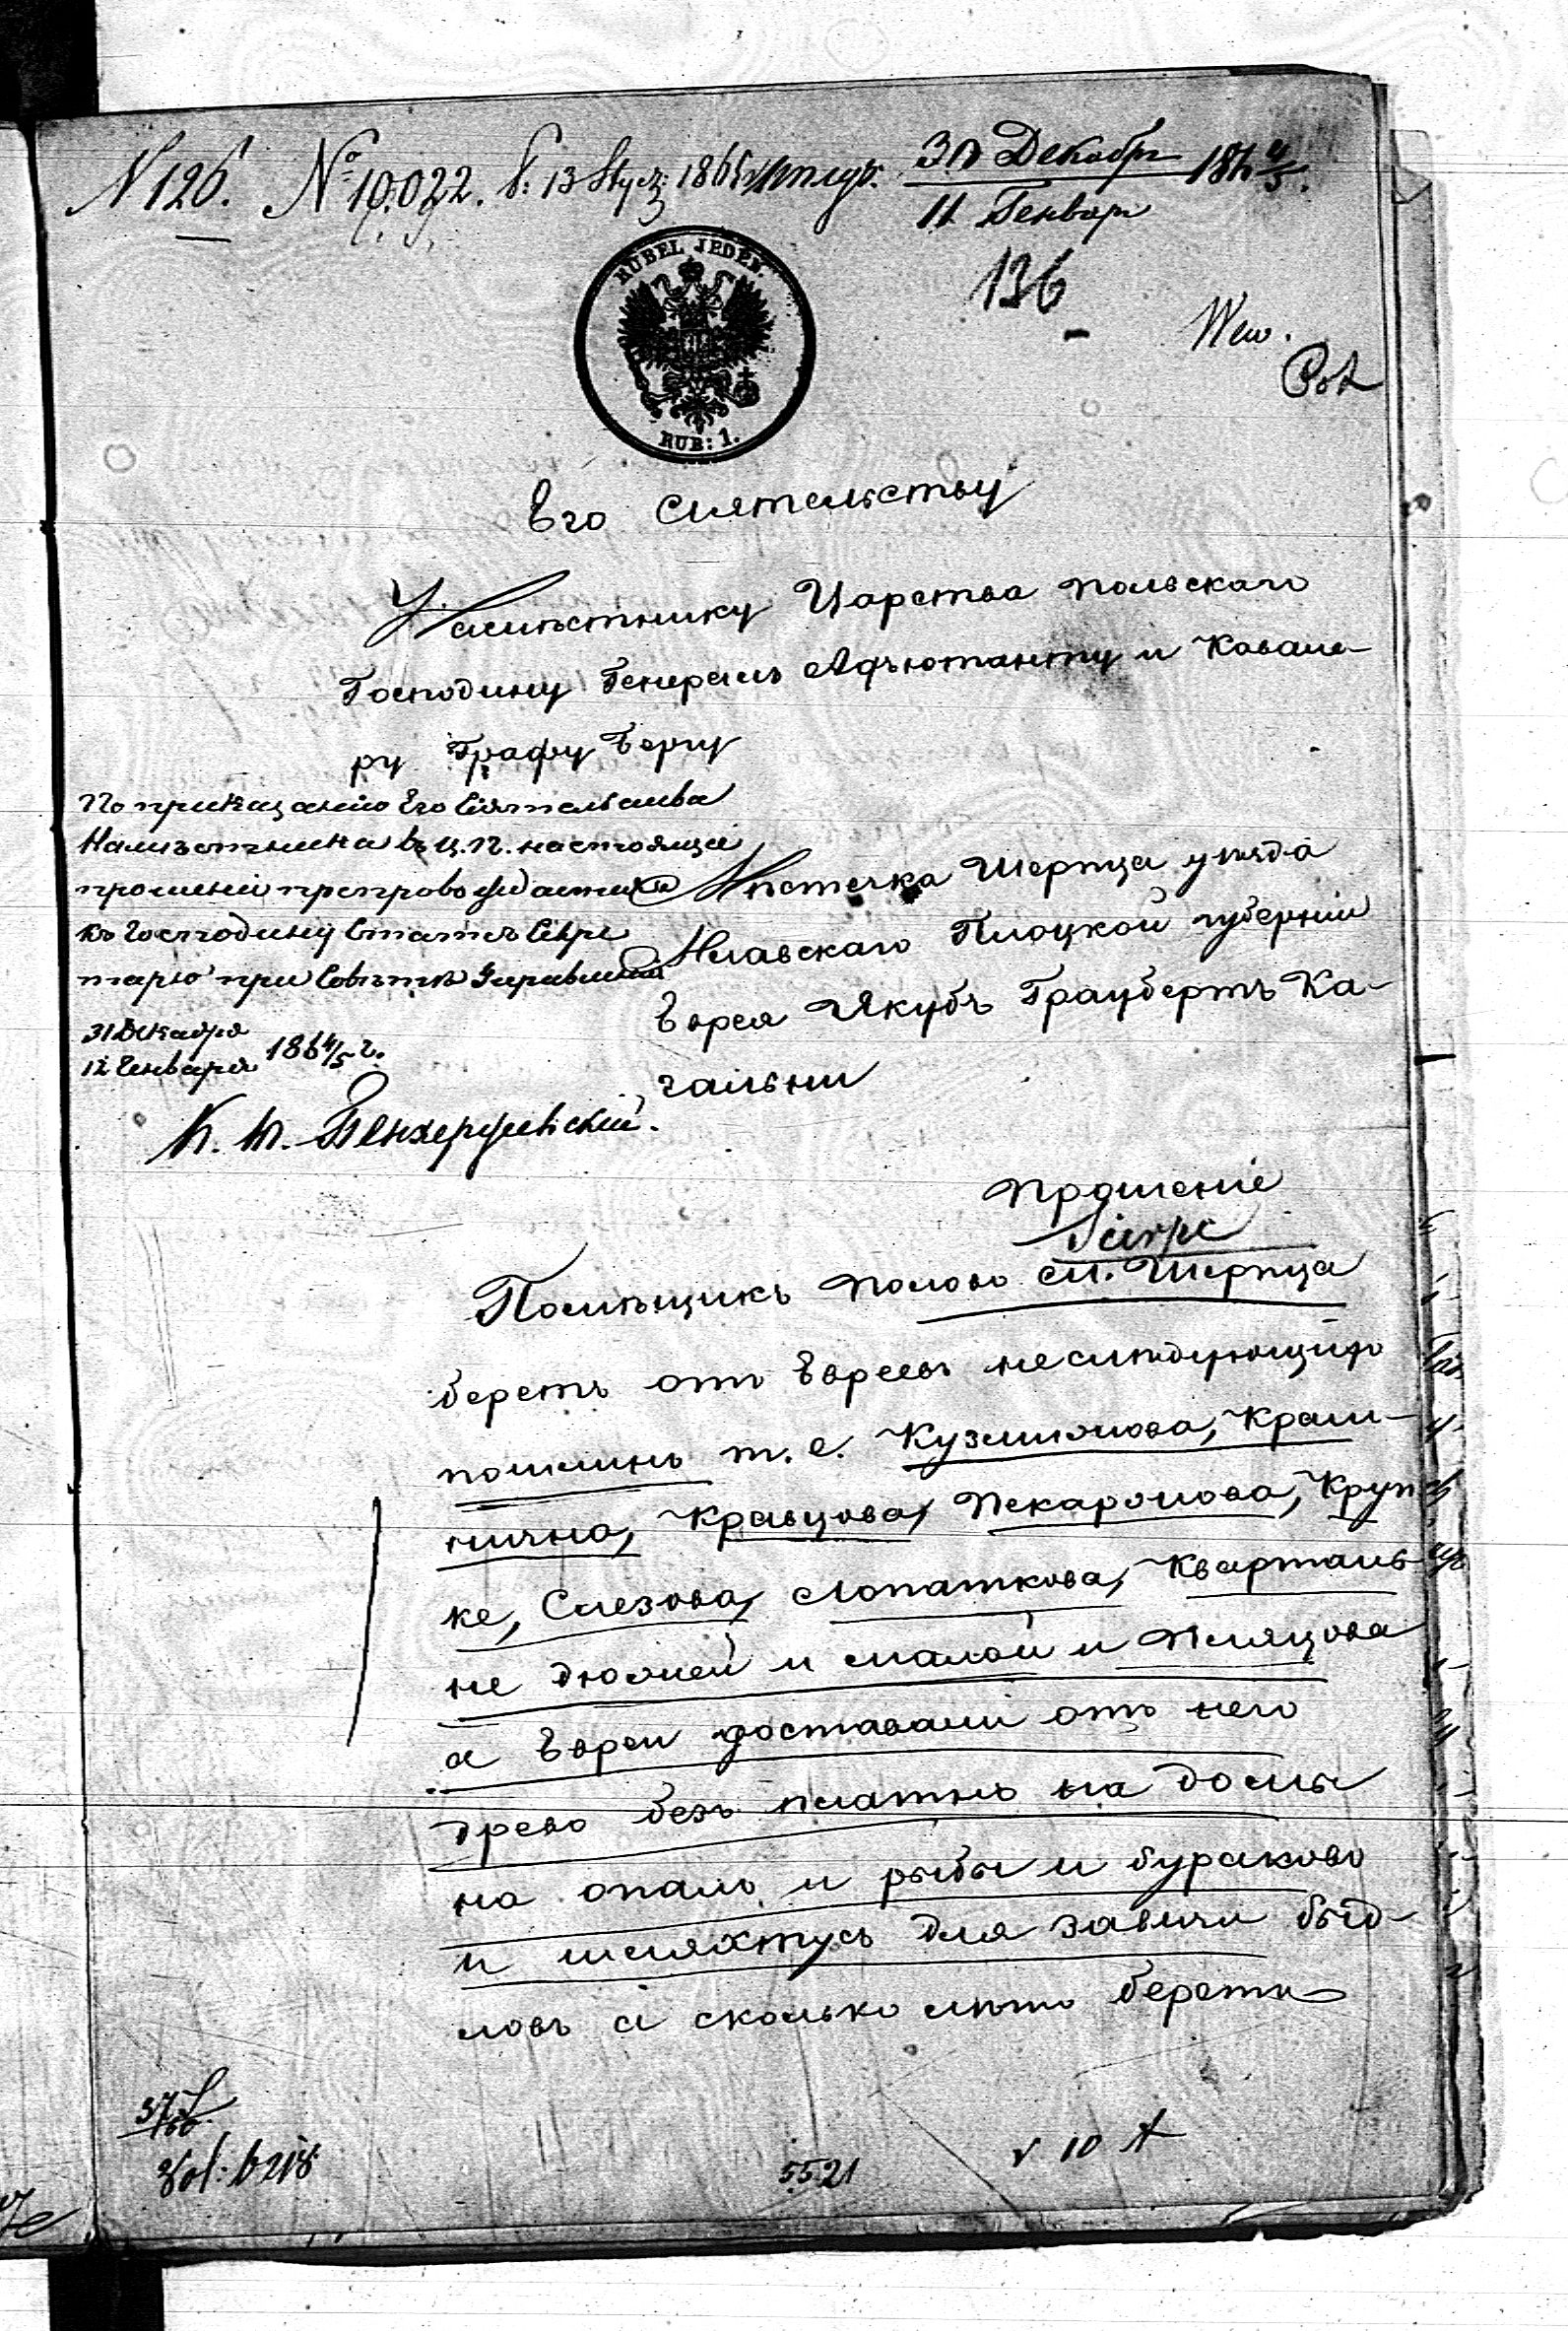 N 126. № 10.022. 13 Stycz: 1865
30 Декабр 1864/5.
11 Генвар
136
RUBEL JEDEN.
RUB: 1.
Его Сиятельству
Намѣстнику Царства Польскаго
Господину Генералъ Адъютанту и Кавале-
ру Графу Бергу
По приказанію Его Сіятельства
Намѣстника въ Ц. П. настоящее
прошеніе препровождается
къ Господину Статсъ Секре
тарю при Совѣтѣ Управленія
31 Декабря
12 Генваря 1864/5 г.
Мѣстечка Шерпца уѣзда
Млавскаго Плоцкой губерніи
Еврея ЯкубъГраубертъ Ка-
гальни
Прошеніе
Sierpc
Помѣщикъ Полово м. Шерпца
беретъ отъ Евреевъ неслѣдующихъ
пошлинъ т. е. Кузмионова, Крам-
нична, Кравцова, Пекаронова, Круп
ке, Слезова, Лопаткова, Кварталь-
не дюжей и малой и Пляцова
а Евреи доставали отъ него
древо безъ платнъ на домы
на опалъ и рыбы и бураково
и шляхтусъ для завичи быд-
ловъ а сколько лѣто беретъ
5521
v 10 A